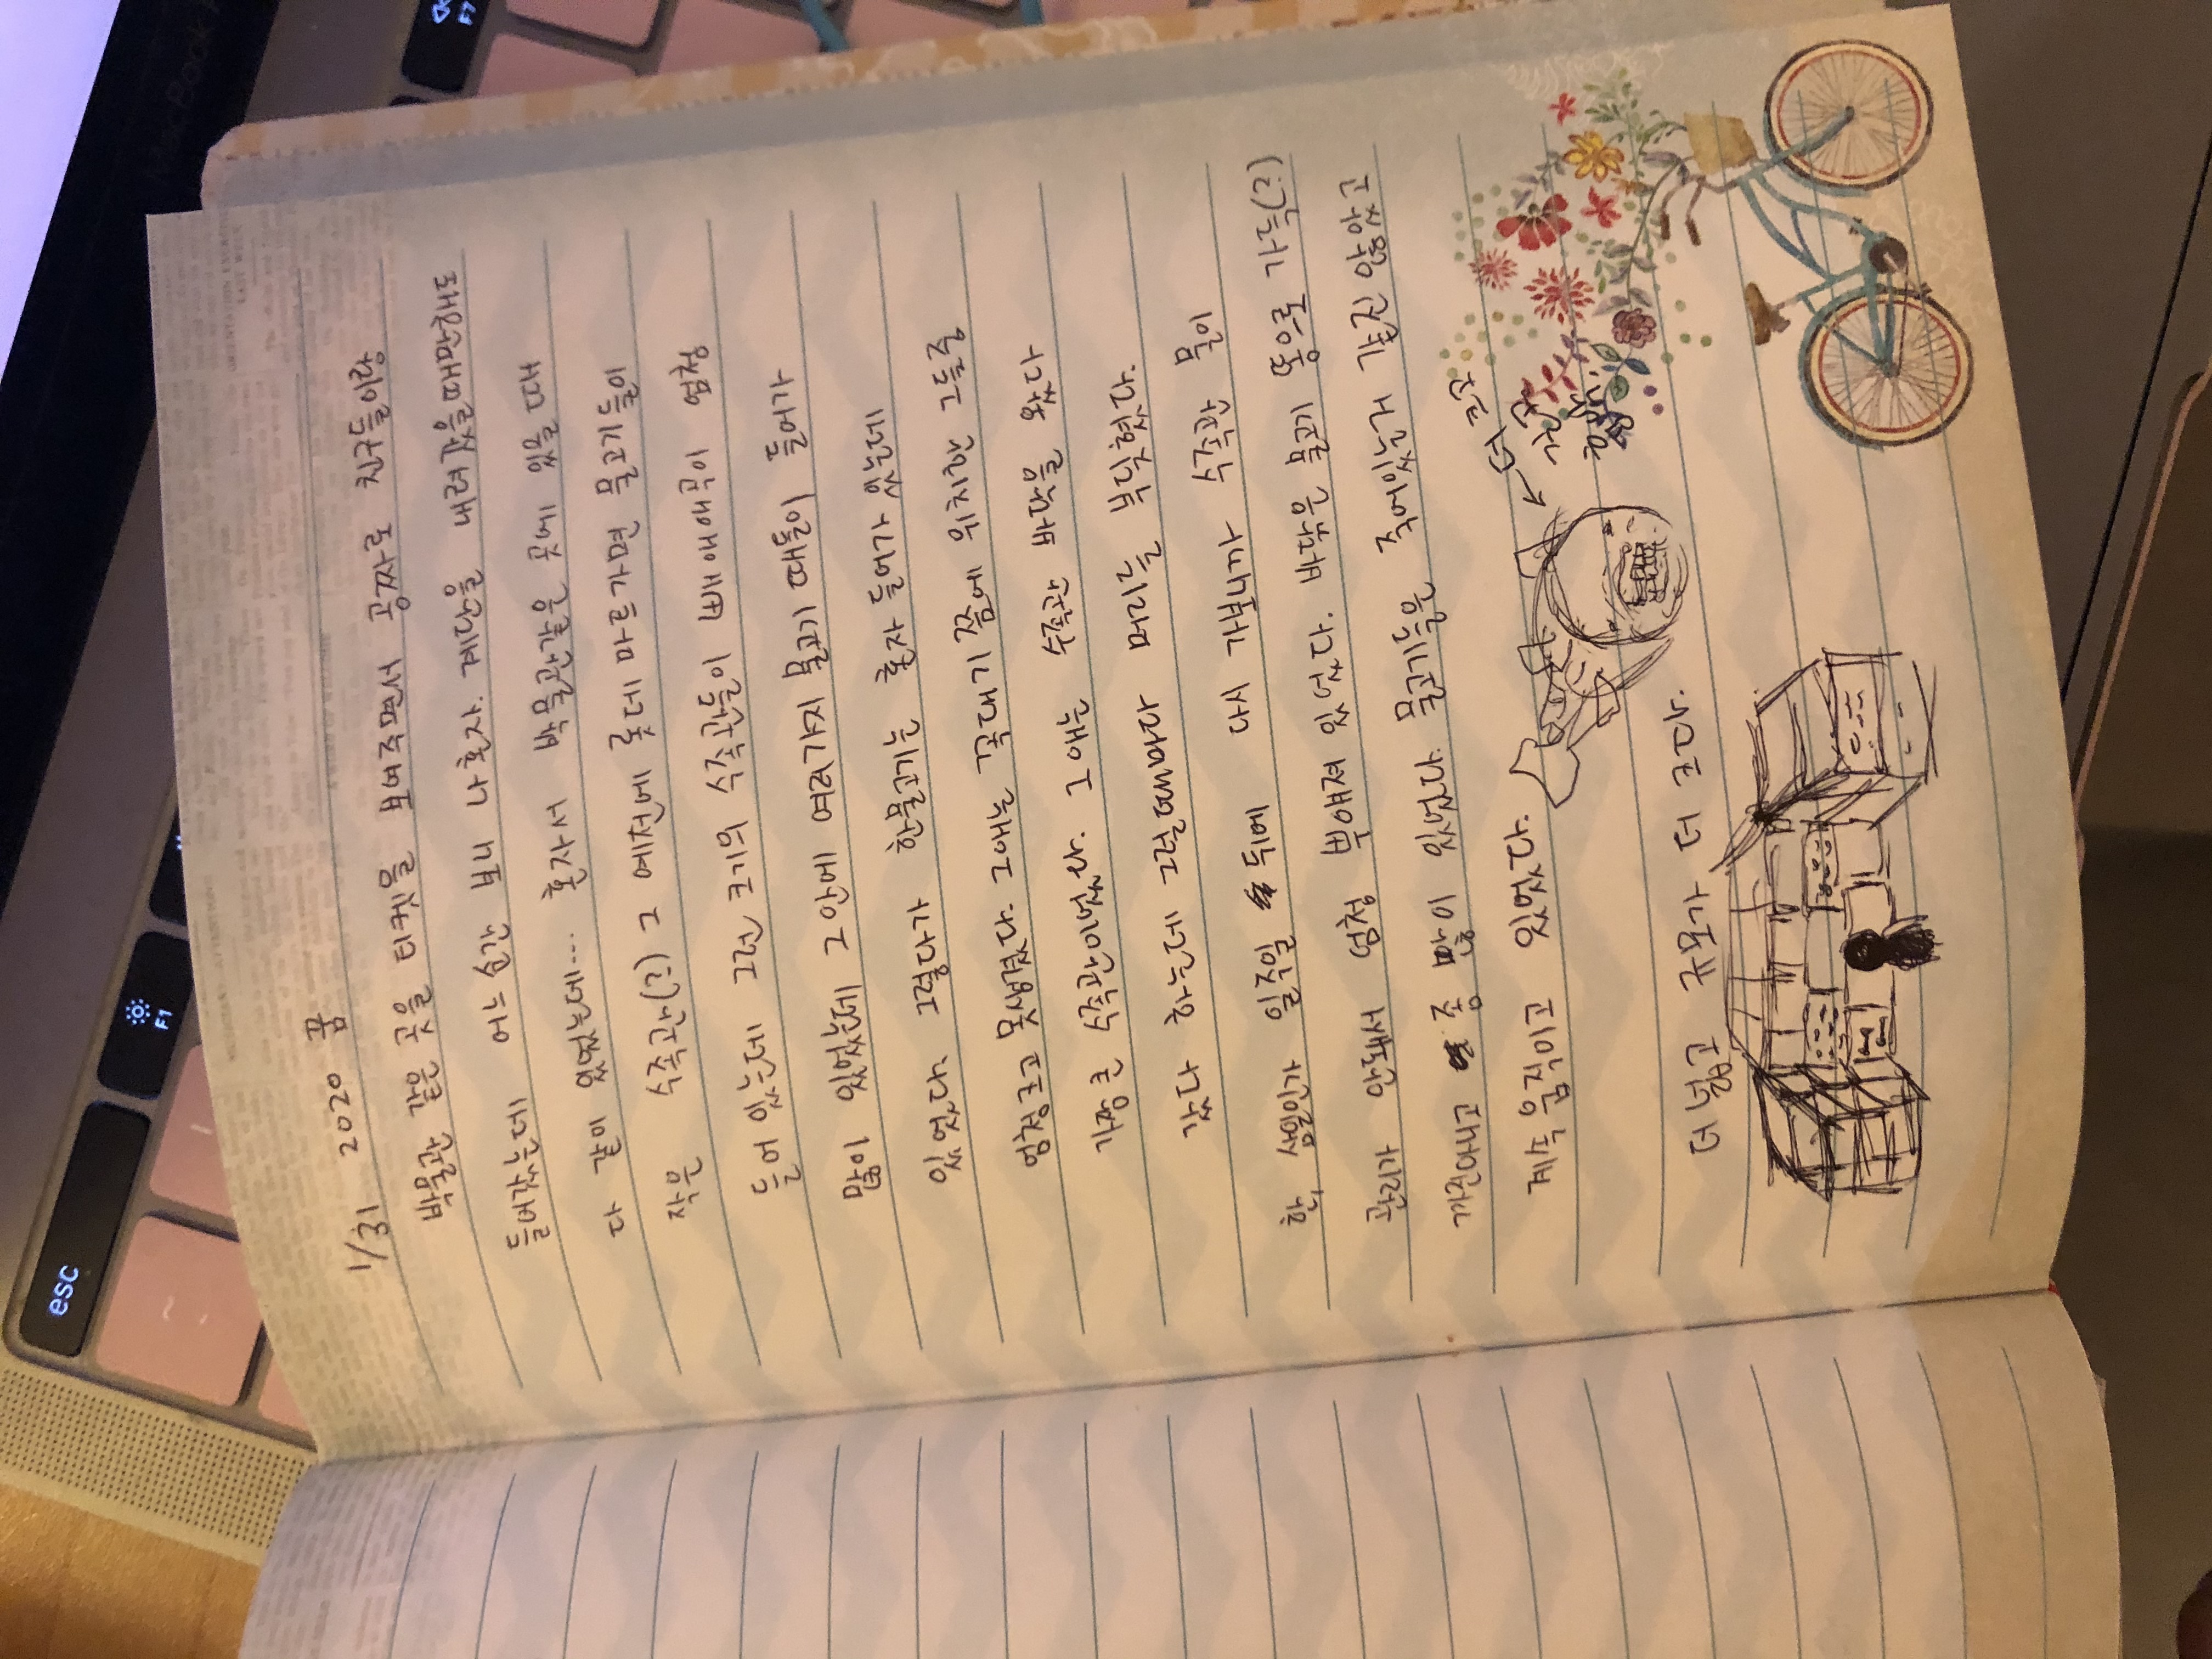 esc
F1
F7
1/31 2020 꿈
박물관 같은 곳을 티켓을 보여주면서 공짜로 친구들이랑
들어갔는데 어느순간 보니 나혼자. 계단을 내려갔을때만해도
다 같이 있었는데... 혼자서 박물관같은 곳에 있을때
작은 수족관(?) 그 예전에 롯데마트가면 물고기들이
들어있는데 그런 크기의 수족관들이 빼애애곡이 엄청
많이 있었는데 그안에 여러가지 물고기 때들이 들어가
있었다. 그렇다가 한물고기는 혼자 들어가 있는데
엄청크고 못생겼다. 그애는 꼭대기쯤에 위치한 그들중
가장큰 수족관이었다. 그애는 수족관 바닥을 왔다
갔다 하는데 그럴때마다 머리를 부딪혔다.
한, 삼일인가 일주일 뒤에 다시 가보니까 수족관 물이
관리가 안돼서 엄청 뿌얘져 있었다. 바닦은 물고기 똥으로 가득(?)
까진아니고 좀 많이 있었다. 물고기들은 죽어있는거 같진 않았고
계속 움직이고 있었다.
←더 크고
더 넓고 규모가 더 크다.